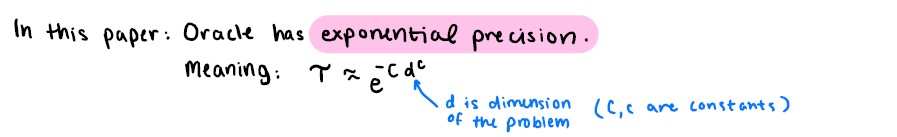 In this paper: Oracle has exponential precision.
Meaning: τ ≈ e^{-C d^c}
d is dimension (C, c are constants)
of the problem